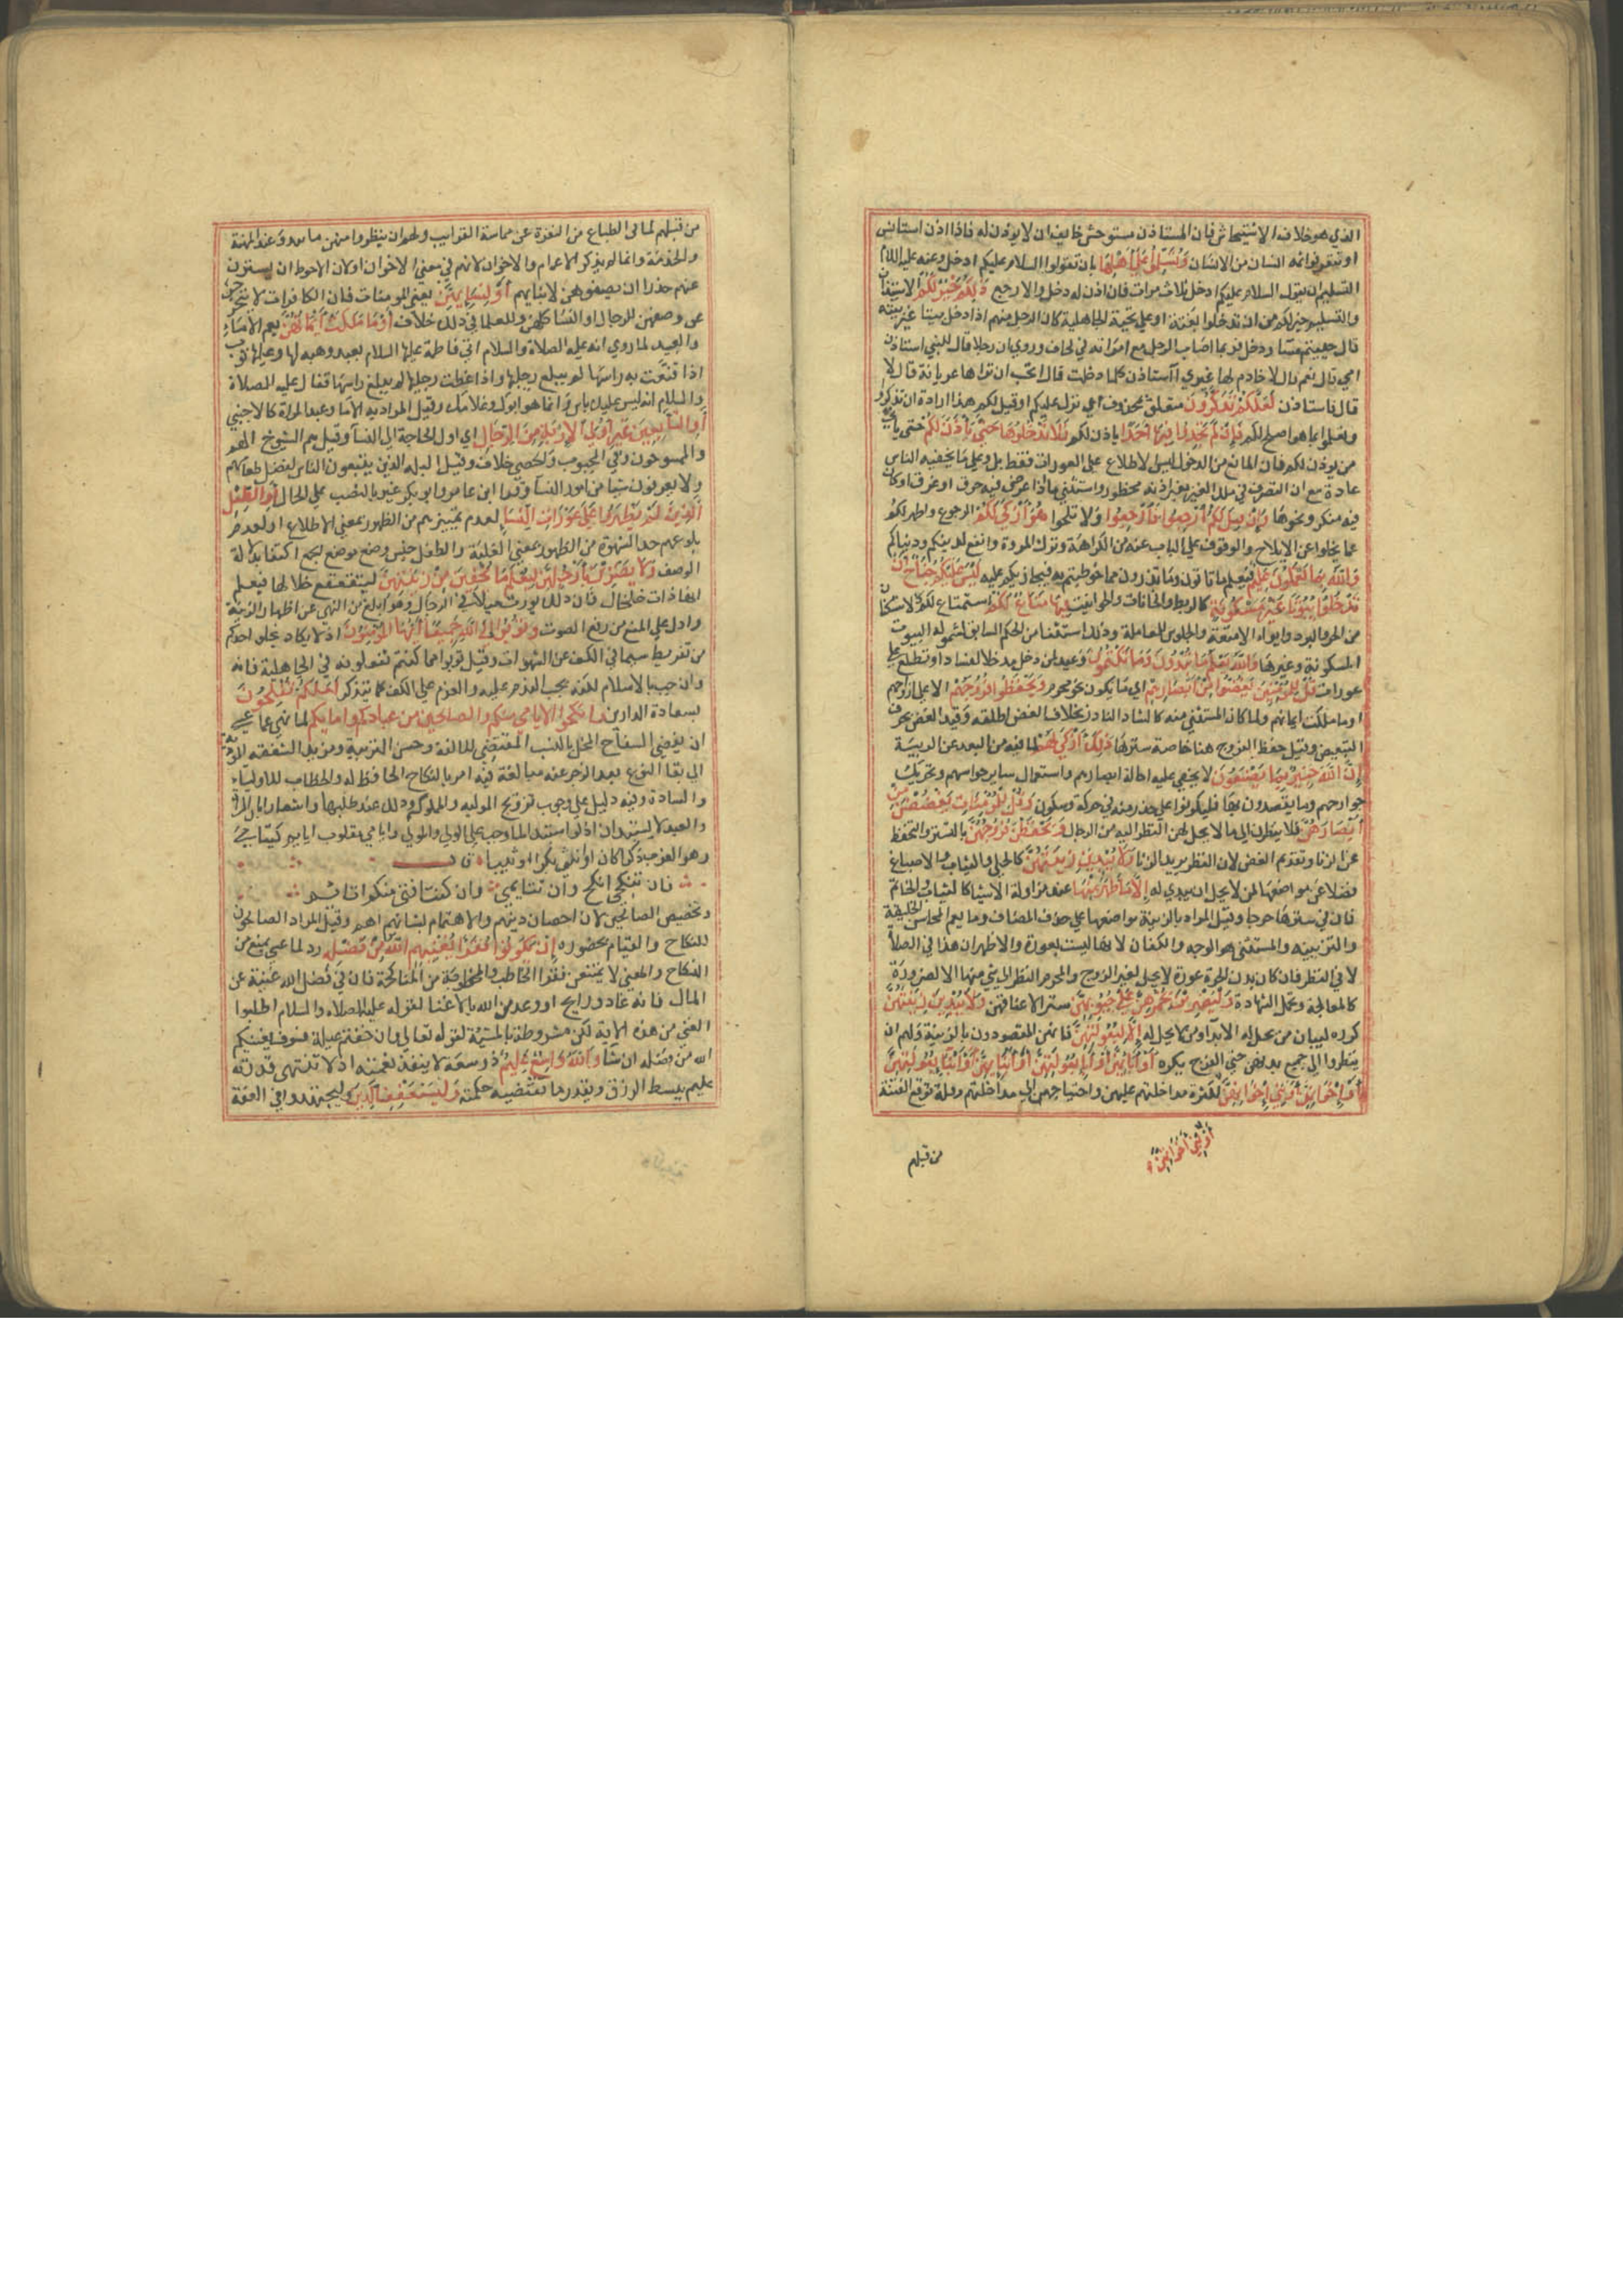 الذي هو خلاف الاستيحاش فان المستاذن مستوحش خايف ان لا يوذن له فاذا اذن استانس
او تتعرفوا ثمه انسان من الانسان وَتُسَلِّمُوا عَلَىٰ أَهْلِهَا بان تقولوا السلام عليكم ادخل وعنه عليه السلام
التسليم ان يقول السلام عليكم ادخل ثلاث مرات فان اذن له دخل والا رجع ذَلِكُمْ خَيْرٌ لَكُمْ الاستيذان
والتسليم خير لكم من ان تدخلوا بغتة او على تحية الجاهلية كان الرجل منهم اذا دخل بيتا غير بيته
قال حييتم مسا ودخل فربما اصاب الرجل مع امراته في لحاف وروي ان رجلا قال للنبي استاذن
امي قال نعم قال لا خادم لها غيري ااستاذن كلما دخلت قال اتحب ان تراها عريانة قال لا
قال فاستاذن لَعَلَّكُمْ تَذَكَّرُونَ متعلق بمحذوف اي نزل عليكم او قيل لكم هذا ارادة ان تذكروا
وتعملوا بما هو اصلح لكم فَإِنْ لَمْ تَجِدُوا فِيهَا أَحَدًا ياذن لكم فَلَا تَدْخُلُوهَا حَتَّىٰ يُؤْذَنَ لَكُمْ حتى ياتي
من يوذن لكم فان المانع من الدخول ليس الاطلاع على العورات فقط بل وعلى ما يخفيه الناس
عادة مع ان التصرف في ملك الغير بغير اذنه محظور واستثنى ما اذا عرض فيه حرق او غرق او كان
فيه منكر ونحوها وَإِنْ قِيلَ لَكُمُ ارْجِعُوا فَارْجِعُوا ولا تلحوا هُوَ أَزْكَىٰ لَكُمْ الرجوع واطهر لكم
عما يخلوا عن الالحاح والوقوف على الباب عنه من الكراهة وترك المروة وانفع لدينكم ودنياكم
وَاللَّهُ بِمَا تَعْمَلُونَ عَلِيمٌ فيعلم ما تاتون وما تذرون مما خوطبتم به فيجازيكم عليه لَيْسَ عَلَيْكُمْ جُنَاحٌ أَنْ
تَدْخُلُوا بُيُوتًا غَيْرَ مَسْكُونَةٍ كالربط والخانات والحوانيت فِيهَا مَتَاعٌ لَكُمْ استمتاع لكم كالاستكنان
من الحر والبرد وايواء الامتعة والجلوس للمعاملة وذلك استثنا من الحكم السابق لشموله البيوت
المسكونة وغيرها وَاللَّهُ يَعْلَمُ مَا تُبْدُونَ وَمَا تَكْتُمُونَ وعيد لمن دخل مدخلا لفساد او تطلع على
عورات قُلْ لِلْمُؤْمِنِينَ يَغُضُّوا مِنْ أَبْصَارِهِمْ اي ما يكون نحو محرم وَيَحْفَظُوا فُرُوجَهُمْ الا على ازواجهم
او ما ملكت ايمانهم ولما كان المستثنى منه كالشاذ النادر بخلاف الغض اطلقه وقيد الغض بحرف
التبعيض وقيل حفظ الفروج هنا خاصة سترها ذَلِكَ أَزْكَىٰ لَهُمْ لما فيه من البعد عن الريبة
إِنَّ اللَّهَ خَبِيرٌ بِمَا يَصْنَعُونَ لا يخفى عليه اجالة ابصارهم واستعمال ساير حواسهم وتحريك
جوارحهم وما يقصدون بها فليكونوا على حذر منه في حركة وسكون وَقُلْ لِلْمُؤْمِنَاتِ يَغْضُضْنَ مِنْ
أَبْصَارِهِنَّ فلا ينظرن الى ما لا يحل لهن النظر اليه من الرجال وَيَحْفَظْنَ فُرُوجَهُنَّ بالتستر والتحفظ
عن الزنا وتقديم الغض لان النظر بريد الزنا وَلَا يُبْدِينَ زِينَتَهُنَّ كالحلي والثياب والاصباغ
فضلا عن مواضعها لمن لا يحل ان يبدي له إِلَّا مَا ظَهَرَ مِنْهَا عند مزاولة الاشيا كالثياب والخاتم
فان في سترها حرجا وقيل المراد بالزينة مواضعها على حذف المضاف وما يعم المحاسن الخليقية
والتزيينيه والمستثنى هو الوجه والكفان لانها ليست بعورة والاظهر ان هذا في الصلاة
لا في النظر فان كل بدن الحرة عورة لا يحل لغير الزوج والمحرم النظر الى شي منها الا لضرورة
كالمعالجة وتحمل الشهادة وَلْيَضْرِبْنَ بِخُمُرِهِنَّ عَلَىٰ جُيُوبِهِنَّ سترا لاعناقهن وَلَا يُبْدِينَ زِينَتَهُنَّ
كرره لبيان من يحل له الابدا ومن لا يحل له إِلَّا لِبُعُولَتِهِنَّ فانهم المقصودون بالزينة ولهم ان
ينظروا الى جميع بدنهن حتى الفرج بكره أَوْ آبَائِهِنَّ أَوْ آبَاءِ بُعُولَتِهِنَّ أَوْ أَبْنَائِهِنَّ أَوْ أَبْنَاءِ بُعُولَتِهِنَّ
أَوْ إِخْوَانِهِنَّ أَوْ بَنِي إِخْوَانِهِنَّ لكثرة مداخلتهم عليهن واحتياجهن الى مداخلتهم وقلة توقع الفتنة
أَوْ بَنِي أَخَوَاتِهِنَّ
من قبلهم
من قبلهم لما في الطباع من النفرة عن مماسة القرايب ولهم ان ينظروا منهن ما يبدو عند المهنة
والخدمة وانما لم يذكر الاعمام والاخوال لانهم في معنى الاخوان او لان الاحوط ان يستترن
عنهم حذرا ان يصفوهن لابنايهم أَوْ نِسَائِهِنَّ يعني المومنات فان الكافرات لا يتحرجن
عن وصفهن للرجال او النسا كلهن وللعلما في ذلك خلاف أَوْ مَا مَلَكَتْ أَيْمَانُهُنَّ يعم الاماء
والعبيد لما روي انه عليه الصلاة والسلام اتى فاطمة عليها السلام بعبد وهبه لها وعليها ثوب
اذا قنعت به راسها لم يبلغ رجليها واذا غطت رجليها لم يبلغ راسها فقال عليه الصلاة
والسلام انه ليس عليك باس انما هو ابوك وغلامك وقيل المراد به الاما وعبد المراة كالاجنبي
أَوِ التَّابِعِينَ غَيْرِ أُولِي الْإِرْبَةِ مِنَ الرِّجَالِ اي اولي الحاجة الى النسآ وقيل هم الشيوخ الهم
والممسوحون وفي المجبوب والخصي خلاف وقيل البله الذين يتبعون الناس لفضل طعامهم
ولا يعرفون شيا من امور النسآ وقرا ابن عامر وابو بكر غير بالنصب على الحال أَوِ الطِّفْلِ
الَّذِينَ لَمْ يَظْهَرُوا عَلَىٰ عَوْرَاتِ النِّسَا لعدم تمييزهم من الظهور بمعنى الاطلاع او لعدم
بلوغهم حد الشهوة من الظهور بمعنى الغلبة والطفل جنس وضع موضع الجمع اكتفا بدلالة
الوصف وَلَا يَضْرِبْنَ بِأَرْجُلِهِنَّ لِيُعْلَمَ مَا يُخْفِينَ مِنْ زِينَتِهِنَّ ليتقعقع خلخالها فيعلم
انها ذات خلخال فان ذلك يورث ميلا في الرجال وهو ابلغ من النهي عن اظهار الزينة
وادل على المنع من رفع الصوت وَتُوبُوا إِلَى اللَّهِ جَمِيعًا أَيُّهَا الْمُؤْمِنُونَ اذ لا يكاد يخلو احدكم
من تفريط سيما في الكف عن الشهوات وقيل توبوا مما كنتم تفعلونه في الجاهلية فانه
وان جب بالاسلام لكنه يجب الندم عليه والعزم على الكف كلما يتذكر لَعَلَّكُمْ تُفْلِحُونَ
بسعادة الدارين وانكحوا الايامى منكم والصالحين من عبادكم وامايكم لما نهى عما عسى
ان يفضي الى السفاح المخل بالنسب المقتضي للالفة وحسن التربية ومزيد الشفقه المودية
الى بقا النوع بعد الزجر عنه مبالغة فيه امر بالنكاح الحافظ له والخطاب للاولياء
والسادة وفيه دليل على وجوب تزويج المولية والمملوك وذلك عند طلبها واشعار بان المراة
والعبد لا يستبدان اذ لو استبدا لما وجب على الولي والمولى وايامى مقلوب ايايم كيتامى
وهو العزب ذكرا كان او انثى بكرا او ثيبا قال
فان تنكحي انكح وان تتايمي وان كنت افتى منكم اتايم
وتخصيص الصالحين لان احصان دينهم والاهتمام بشانهم اهم وقيل المراد الصالحون
للنكاح والقيام بحقوقه إِنْ يَكُونُوا فُقَرَا يُغْنِهِمُ اللَّهُ مِنْ فَضْلِهِ رد لما عسى يمنع من
النكاح والمعنى لا يمنعن فقر الخاطب والمخطوبة من المناكحة فان في فضل الله غنية عن
المال فانه غاد ورايح او وعد من الله بالاغنا لقوله عليه الصلاه والسلام اطلبوا
الغنى من هذه الاية لكن مشروطة بالمشية لقوله تعالى وان خفتم عيلة فسوف يغنيكم
الله من فضله ان شآ وَاللَّهُ وَاسِعٌ عَلِيمٌ ذو سعة لا ينفذ نعمته اذ لا تنتهي قدرته
عليم يبسط الرزق ويقدر ما تقتضيه حكمته وَلْيَسْتَعْفِفِ الَّذِينَ وليجتهد وا في العفة